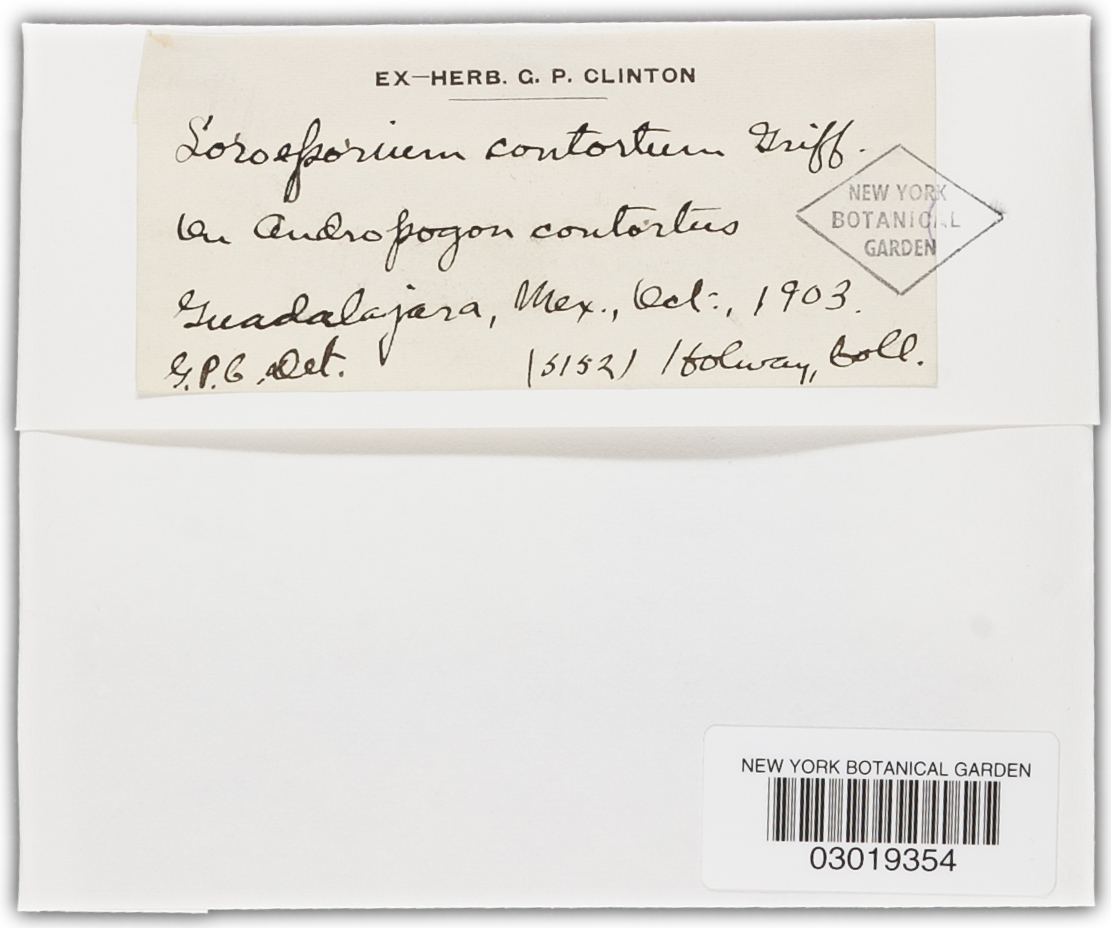 EX-HERB. G. P. CLINTON
Sorosporium contortum Griff.
On Andropogon contortus
Guadalajara, Mex., Oct., 1903.
G.P.C. Det. (5152) Holway, Coll.
NEW YORK
BOTANICAL
GARDEN
NEW YORK BOTANICAL GARDEN
03019354